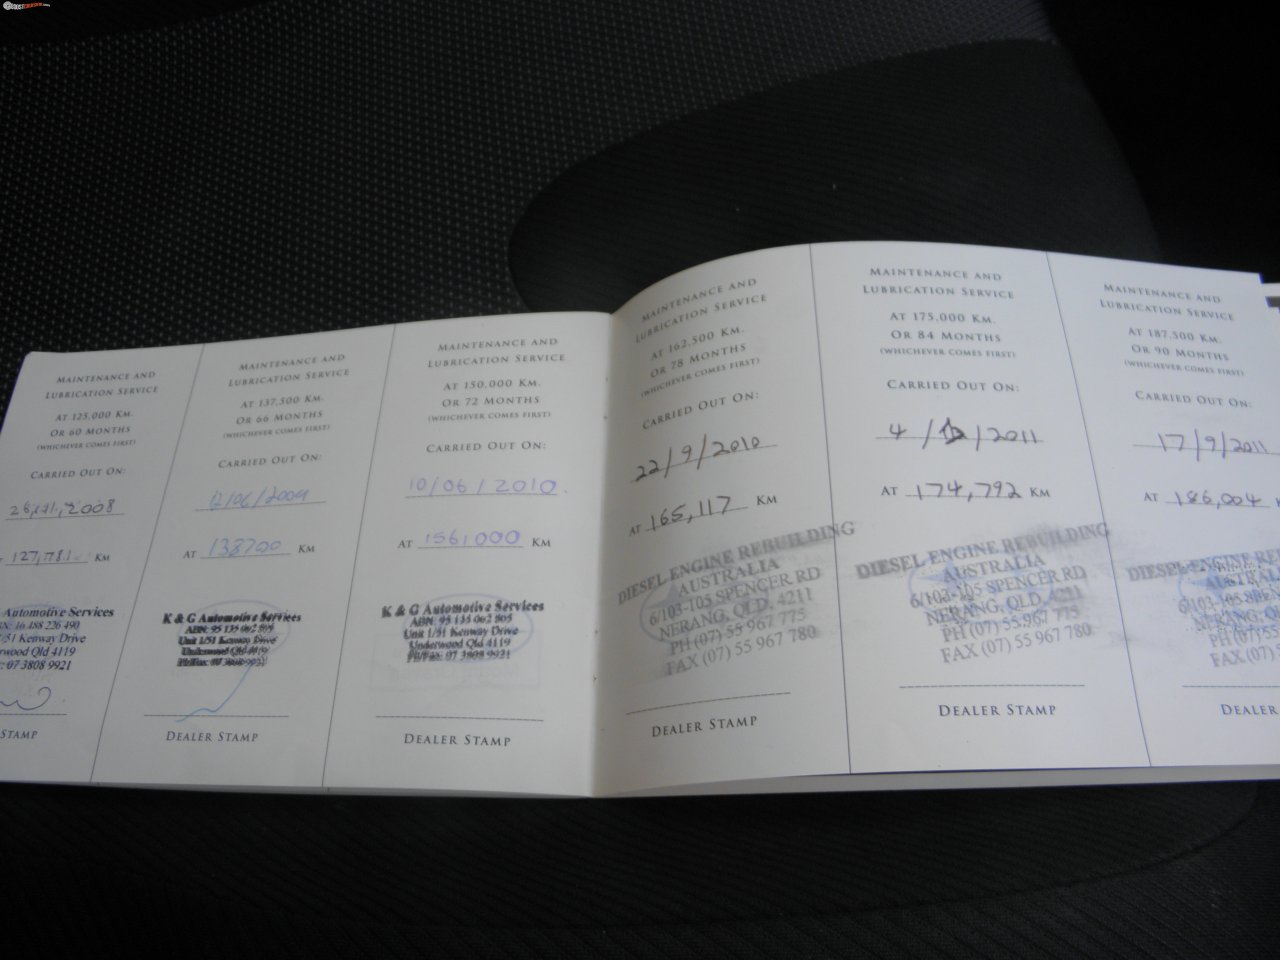 MAINTENANCE AND
LUBRICATION SERVICE
AT 125,000 KM.
OR 60 MONTHS
(WHICHEVER COMES FIRST)
CARRIED OUT ON:
2008
127,781 KM
Automotive Services
16 488 226 490
/51 Kenway Drive
rwood Qld 4119
: 07 3808 9921
STAMP
MAINTENANCE AND
LUBRICATION SERVICE
AT 137,500 KM.
OR 66 MONTHS
(WHICHEVER COMES FIRST)
CARRIED OUT ON:
12/06/2009
AT 138700 KM
K & G Automotive Services
ABN: 95 135 062 805
Unit 1/51 Kenway Drive
Underwood Qld 4119
Ph/Fax: 07 3808 9921
DEALER STAMP
MAINTENANCE AND
LUBRICATION SERVICE
AT 150,000 KM.
OR 72 MONTHS
(WHICHEVER COMES FIRST)
CARRIED OUT ON:
10/06/2010
AT 156,000 KM
K & G Automotive Services
ABN: 95 135 062 805
Unit 1/51 Kenway Drive
Underwood Qld 4119
Ph/Fax: 07 3808 9921
DEALER STAMP
MAINTENANCE AND
LUBRICATION SERVICE
AT 162,500 KM.
OR 78 MONTHS
(WHICHEVER COMES FIRST)
CARRIED OUT ON:
22/9/2010
AT 165,117 KM
DIESEL ENGINE REBUILDING
AUSTRALIA
6/103-105 SPENCER RD
NERANG, QLD, 4211
PH (07) 55 967 775
FAX (07) 55 967 780
DEALER STAMP
MAINTENANCE AND
LUBRICATION SERVICE
AT 175,000 KM.
OR 84 MONTHS
(WHICHEVER COMES FIRST)
CARRIED OUT ON:
4/ /2011
AT 174,792 KM
DIESEL ENGINE REBUILDING
AUSTRALIA
6/103-105 SPENCER RD
NERANG, QLD, 4211
PH (07) 55 967 775
FAX (07) 55 967 780
DEALER STAMP
MAINTENANCE AND
LUBRICATION SERVICE
AT 187,500 KM.
OR 90 MONTHS
(WHICHEVER COMES FIRST)
CARRIED OUT ON:
17/9/2011
AT 186,004 K
DIESEL ENGINE RE
AUSTRAL
6/103-105 SPE
NERANG, QL
PH (07) 5
FAX (07) 5
DEALER